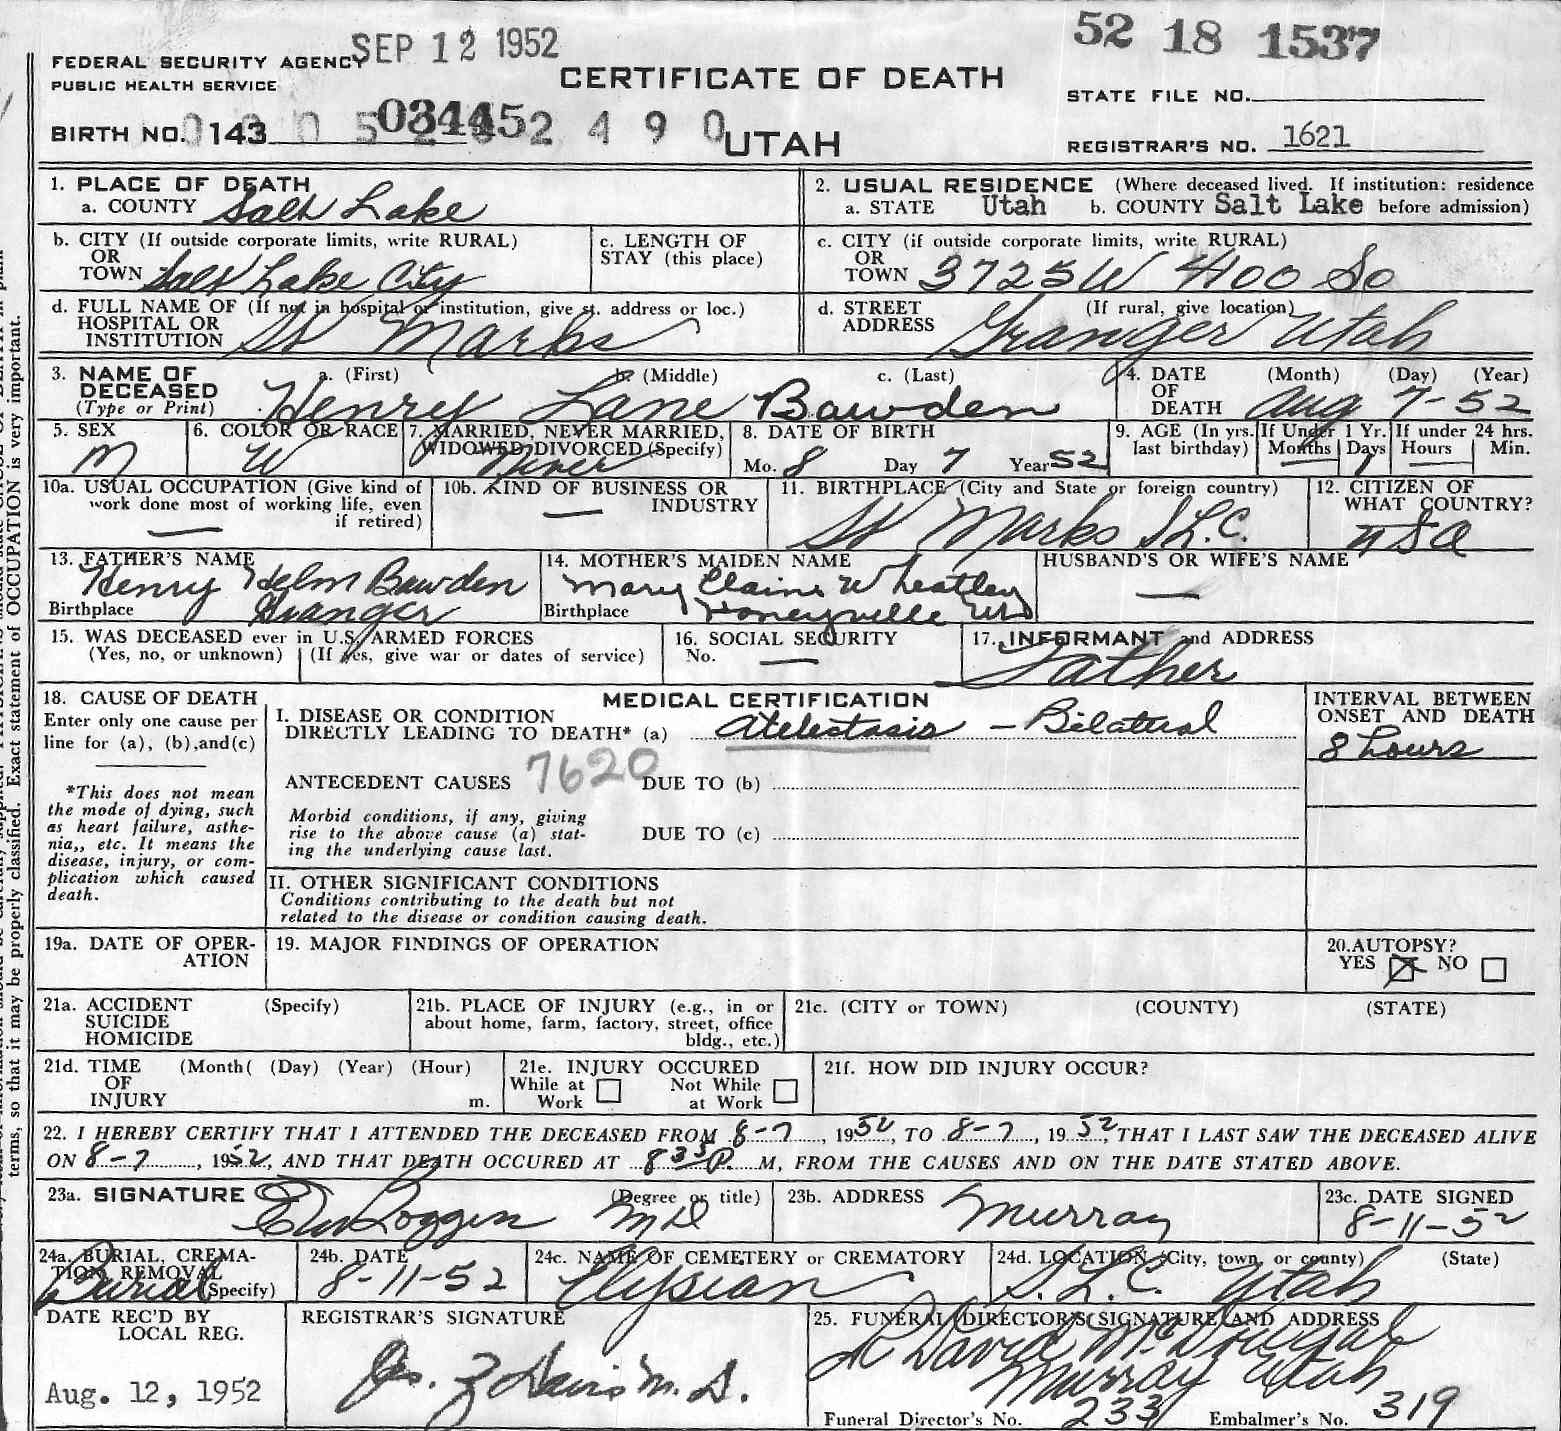 SEP 12 1952
52 18 1537
FEDERAL SECURITY AGENCY
PUBLIC HEALTH SERVICE
CERTIFICATE OF DEATH
STATE FILE NO.
BIRTH NO. 143
UTAH
REGISTRAR'S NO. 1621
1. PLACE OF DEATH
a. COUNTY Salt Lake
2. USUAL RESIDENCE (Where deceased lived. If institution: residence
a. STATE Utah b. COUNTY Salt Lake before admission)
b. CITY (If outside corporate limits, write RURAL)
OR
TOWN Salt Lake City
c. LENGTH OF
STAY (this place)
c. CITY (if outside corporate limits, write RURAL)
OR
TOWN 3725 W 4100 So
d. FULL NAME OF (If not in hospital or institution, give st. address or loc.)
HOSPITAL OR
INSTITUTION St Marks
d. STREET (If rural, give location)
ADDRESS Granger Utah
3. NAME OF DECEASED
(Type or Print)
a. (First) b. (Middle) c. (Last)
Henry Lane Bawden
4. DATE OF DEATH
(Month) (Day) (Year)
Aug 7-52
5. SEX
M
6. COLOR OR RACE
W
7. MARRIED, NEVER MARRIED,
WIDOWED, DIVORCED (Specify)
Never
8. DATE OF BIRTH
Mo. 8 Day 7 Year 52
9. AGE (In yrs.
last birthday)
If Under 1 Yr.
Months Days
If under 24 hrs.
Hours Min.
10a. USUAL OCCUPATION (Give kind of
work done most of working life, even
if retired)
—
10b. KIND OF BUSINESS OR
INDUSTRY
—
11. BIRTHPLACE (City and State or foreign country)
St Marks S.L.C.
12. CITIZEN OF
WHAT COUNTRY?
USA
13. FATHER'S NAME
Henry Helm Bawden
Birthplace Granger
14. MOTHER'S MAIDEN NAME
Mary Elaine Wheatley
Birthplace Honeyville
HUSBAND'S OR WIFE'S NAME
—
15. WAS DECEASED ever in U.S. ARMED FORCES
(Yes, no, or unknown) (If yes, give war or dates of service)
16. SOCIAL SECURITY
No. —
17. INFORMANT and ADDRESS
Father
18. CAUSE OF DEATH
Enter only one cause per
line for (a), (b), and (c)
*This does not mean
the mode of dying, such
as heart failure, asthe-
nia,, etc. It means the
disease, injury, or com-
plication which caused
death.
MEDICAL CERTIFICATION
I. DISEASE OR CONDITION
DIRECTLY LEADING TO DEATH* (a) Atelectasis - Bilateral
INTERVAL BETWEEN
ONSET AND DEATH
8 hours
ANTECEDENT CAUSES 7620 DUE TO (b)
Morbid conditions, if any, giving
rise to the above cause (a) stat-
ing the underlying cause last.
DUE TO (c)
II. OTHER SIGNIFICANT CONDITIONS
Conditions contributing to the death but not
related to the disease or condition causing death.
19a. DATE OF OPER-
ATION
19. MAJOR FINDINGS OF OPERATION
20. AUTOPSY?
YES NO
21a. ACCIDENT (Specify)
SUICIDE
HOMICIDE
21b. PLACE OF INJURY (e.g., in or
about home, farm, factory, street, office
bldg., etc.)
21c. (CITY or TOWN) (COUNTY) (STATE)
21d. TIME (Month( (Day) (Year) (Hour)
OF
INJURY m.
21e. INJURY OCCURED
While at Work Not While at Work
21f. HOW DID INJURY OCCUR?
22. I HEREBY CERTIFY THAT I ATTENDED THE DECEASED FROM 8-7, 1952, TO 8-7, 1952, THAT I LAST SAW THE DECEASED ALIVE
ON 8-7, 1952, AND THAT DEATH OCCURED AT 8 35 P. M, FROM THE CAUSES AND ON THE DATE STATED ABOVE.
23a. SIGNATURE (Degree or title) MD
23b. ADDRESS
Murray
23c. DATE SIGNED
8-11-52
24a. BURIAL, CREMA-
TION, REMOVAL
(Specify)
Burial
24b. DATE
8-11-52
24c. NAME OF CEMETERY or CREMATORY
Elysian
24d. LOCATION (City, town, or county) (State)
S.L.C. Utah
DATE REC'D BY
LOCAL REG.
Aug. 12, 1952
REGISTRAR'S SIGNATURE
Davis M.D.
25. FUNERAL DIRECTOR'S SIGNATURE AND ADDRESS
David McDougal
Murray Utah
Funeral Director's No. 233 Embalmer's No. 319
terms, so that it may be properly classified. Exact statement of OCCUPATION is very important.